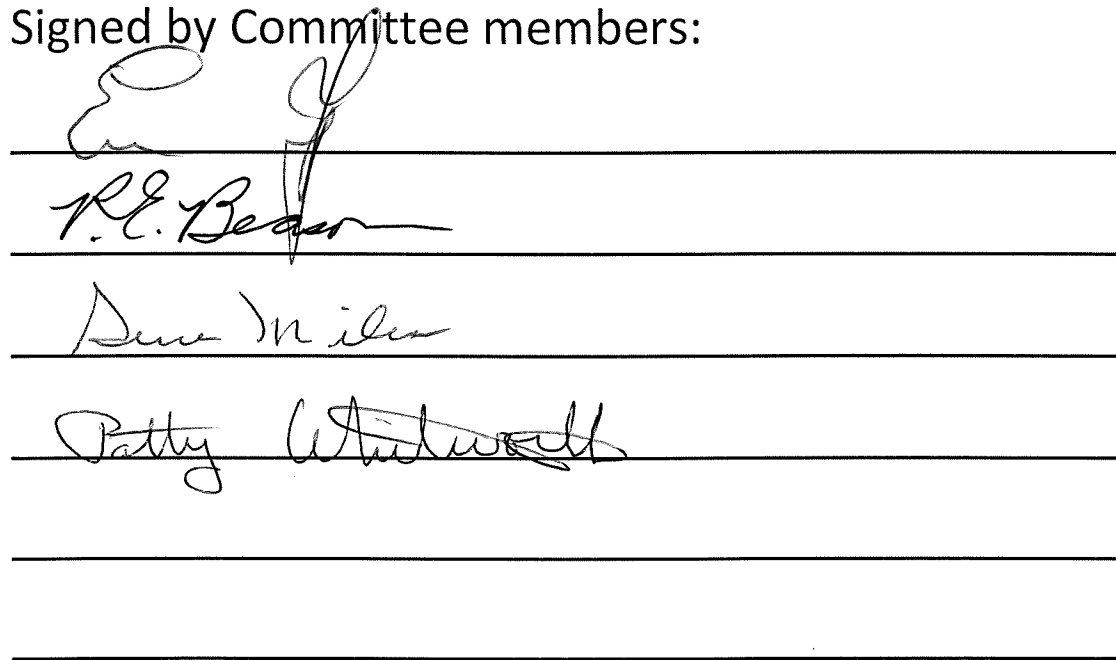 Signed by Committee members:
R.E. Beason
Gene Miles
Patty Whitworth